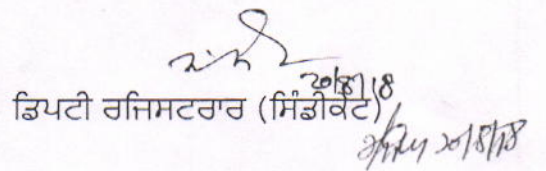 20/8/18
ਡਿਪਟੀ ਰਜਿਸਟਰਾਰ (ਸਿੰਡੀਕੇਟ)
20/8/18